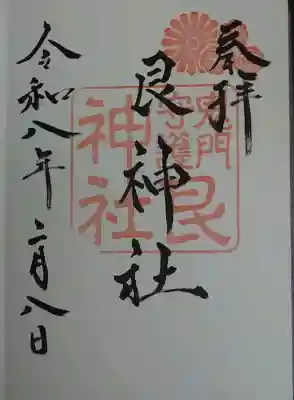 奉拝
艮神社
鬼門
守護
艮
神社
令和八年二月八日